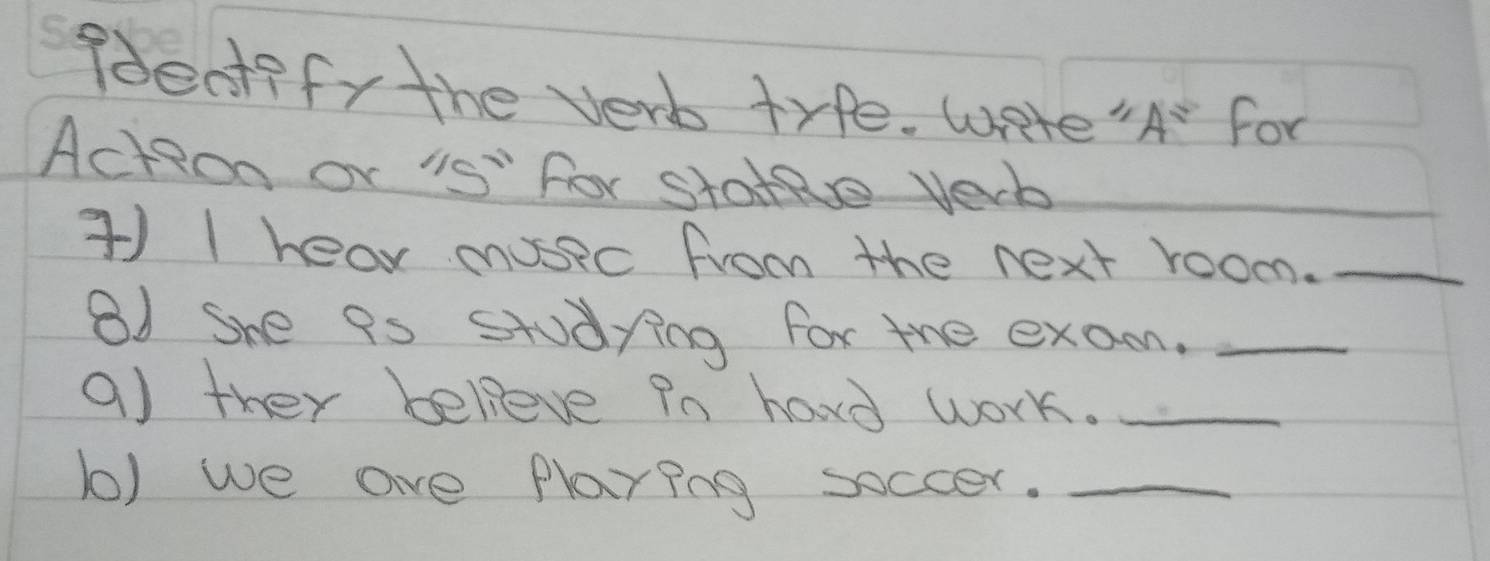 identify the verb type. write "A" for
Action or "S" for stative verb
7) I hear music from the next room. ____
8) She is studying for the exam. ____
9) they believe in hard work. ____
10) we are Playing soccer. ____